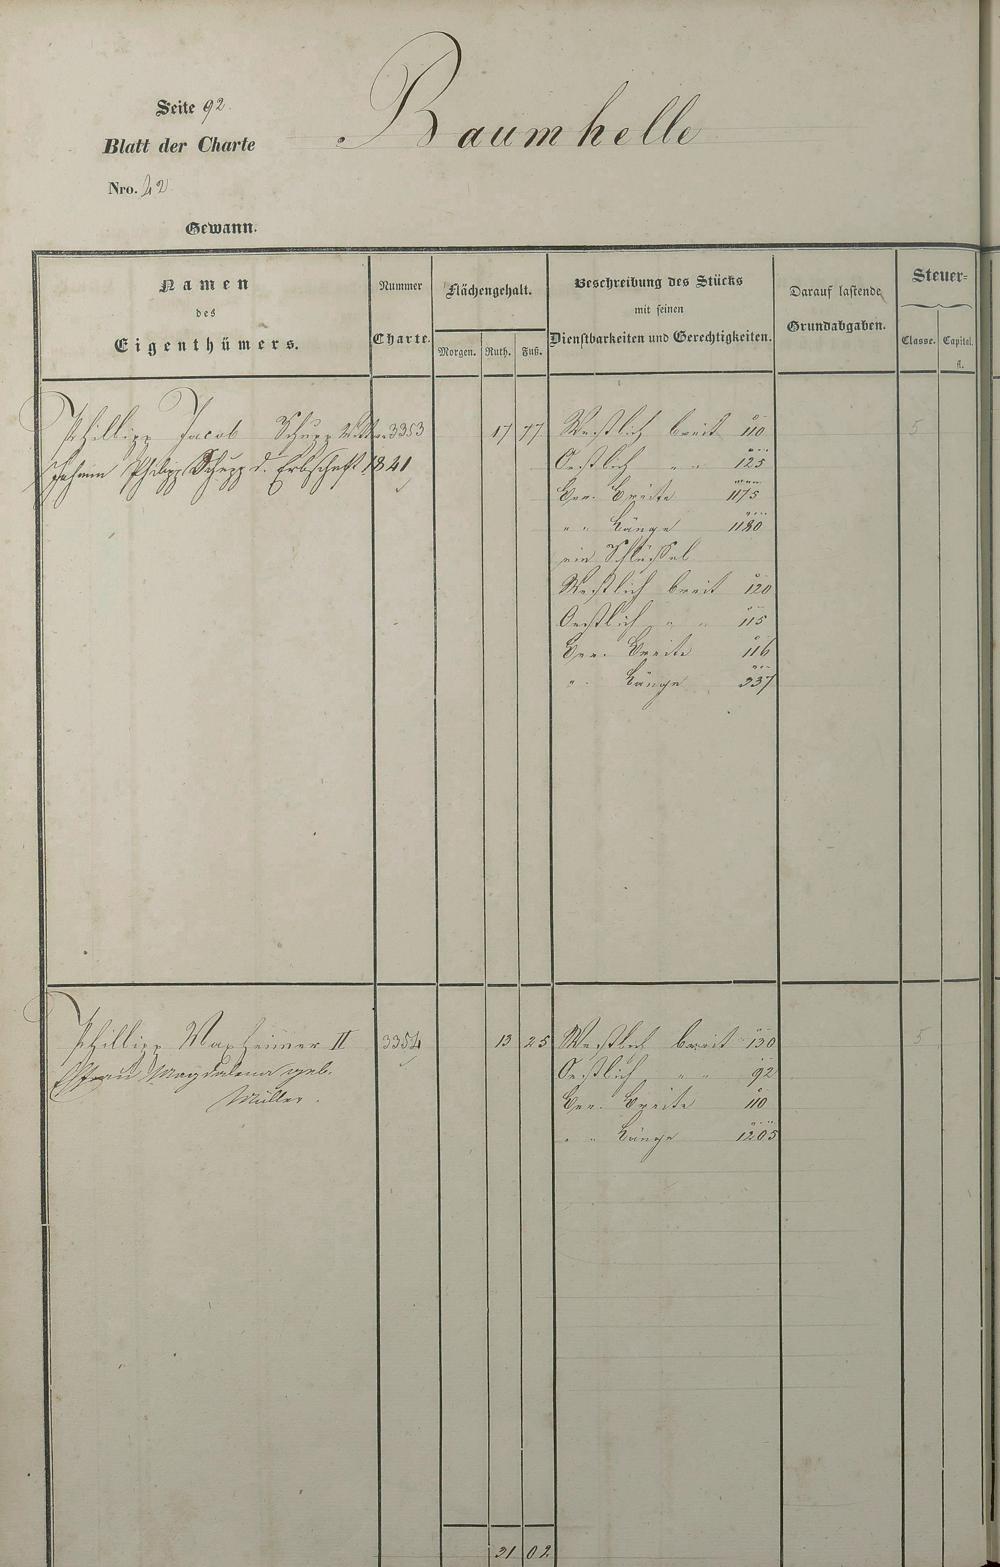 Seite 92.
Baumhelle
Blatt der Charte
Nro. 42
Gewann.
Namen des Eigenthümers.
Nummer Charte.
Flächengehalt.
Morgen. Ruth. Fuß.
Beschreibung des Stücks mit seinen Dienstbarkeiten und Gerechtigkeiten.
Darauf lastende Grundabgaben.
Steuer=
Classe. Capital. fl.
Phillipp Jacob Schupp 3353 17 77 Westlich breit 110 5
Johann Philipp Schupp d. Erbschaft 1841 Oestlich " " 125
Ger. Breite 1175
" " Länge 1180
ein Schlüssel
Westlich breit 120
Oestlich " " 115
Ger. Breite 116
" Länge 337
Phillipp Maxheimer II 3354 13 25 Westlich breit 130 5
Frau Magdalena geb. Oestlich " " 92
Müller. Ger. Breite 110
" " Länge 1205
31 02